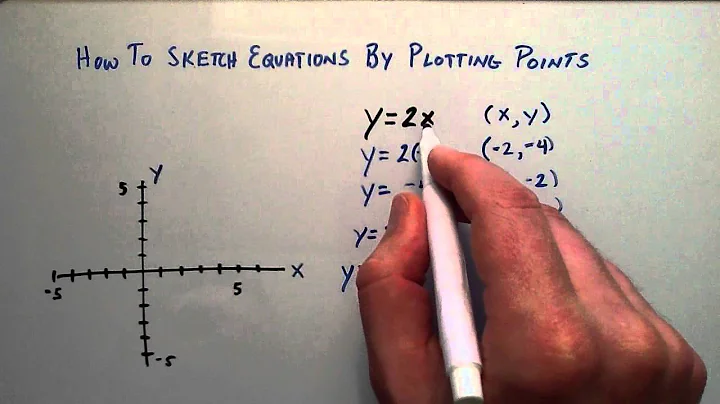 How To Sketch Equations By Plotting Points
y=2x (x,y)
y=2(- (-2,-4)
y= -4 -2)
y=
y
Y
5
X
-5 5
-5